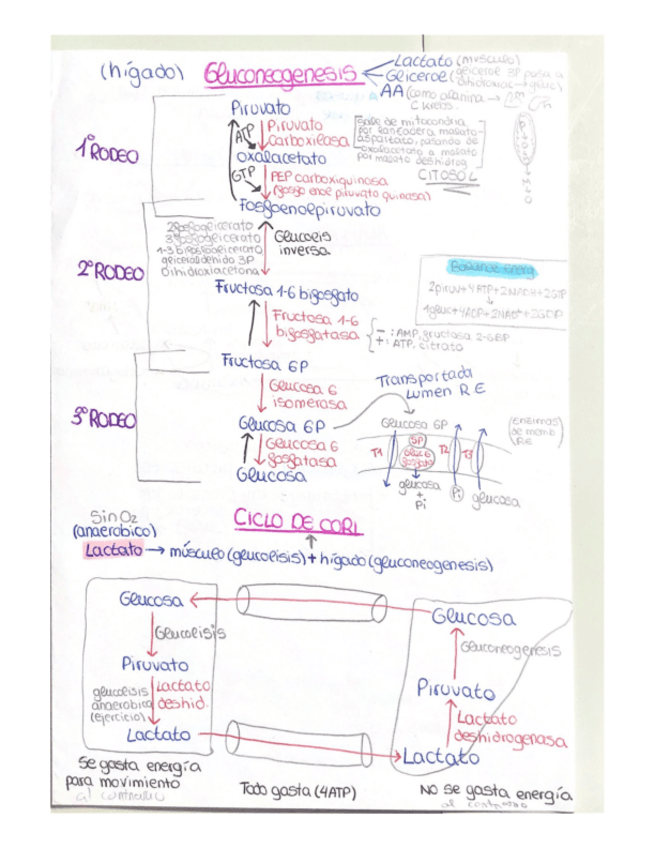 (hígado) Gluconeogenesis
Lactato (músculo)
Glicerol (glicerol 3P pasa a
dihidroxiac → gluc)
AA (como alanina →
C Krebs
Piruvato
1º RODEO
ATP
Piruvato
carboxilasa
Sale de mitocondria
por lanzadera malato-
aspartato, pasando de
oxalacetato a malato
por malato deshidrog
CITOSOL
oxalacetato
GTP
PEP carboxiquinasa
(fosfo enol piruvato quinasa)
Fosfoenolpiruvato
2ºRODEO
2fosfoglicerato
3fosfoglicerato
1-3 bifosfoglicerato
gliceraldehido 3P
Dihidroxiacetona
Glucolisis
inversa
Balance Energ
2piruv+4ATP+2NADH+2GTP
↓
1gluc+4ADP+2NAD+2GDP
Fructosa 1-6 bifosfato
Fructosa 1-6
bifosfatasa
- : AMP, fructosa 2-6BP
+ : ATP, citrato
Fructosa 6P
3ºRODEO
Glucosa 6
isomerasa
Transportada
Lumen RE
Glucosa 6P
Glucosa 6P
(Enzimas
de memb
RE
Glucosa 6
fosfatasa
T1
SP
Gluc 6
fosfato
T2
T3
Glucosa
glucosa
+
Pi
Pi
glucosa
CICLO DE CORI
Sin O2
(anaerobico)
Lactato → músculo (glucolisis) + hígado (gluconeogenesis)
Glucosa
Glucosa
Glucolisis
Gluconeogenesis
Piruvato
Piruvato
glucolisis
anaerobica
(ejercicio)
Lactato
deshid.
Lactato
deshidrogenasa
Lactato
Lactato
Se gasta energía
para movimiento
al contrario
Todo gasta (4ATP)
No se gasta energía
al contrario